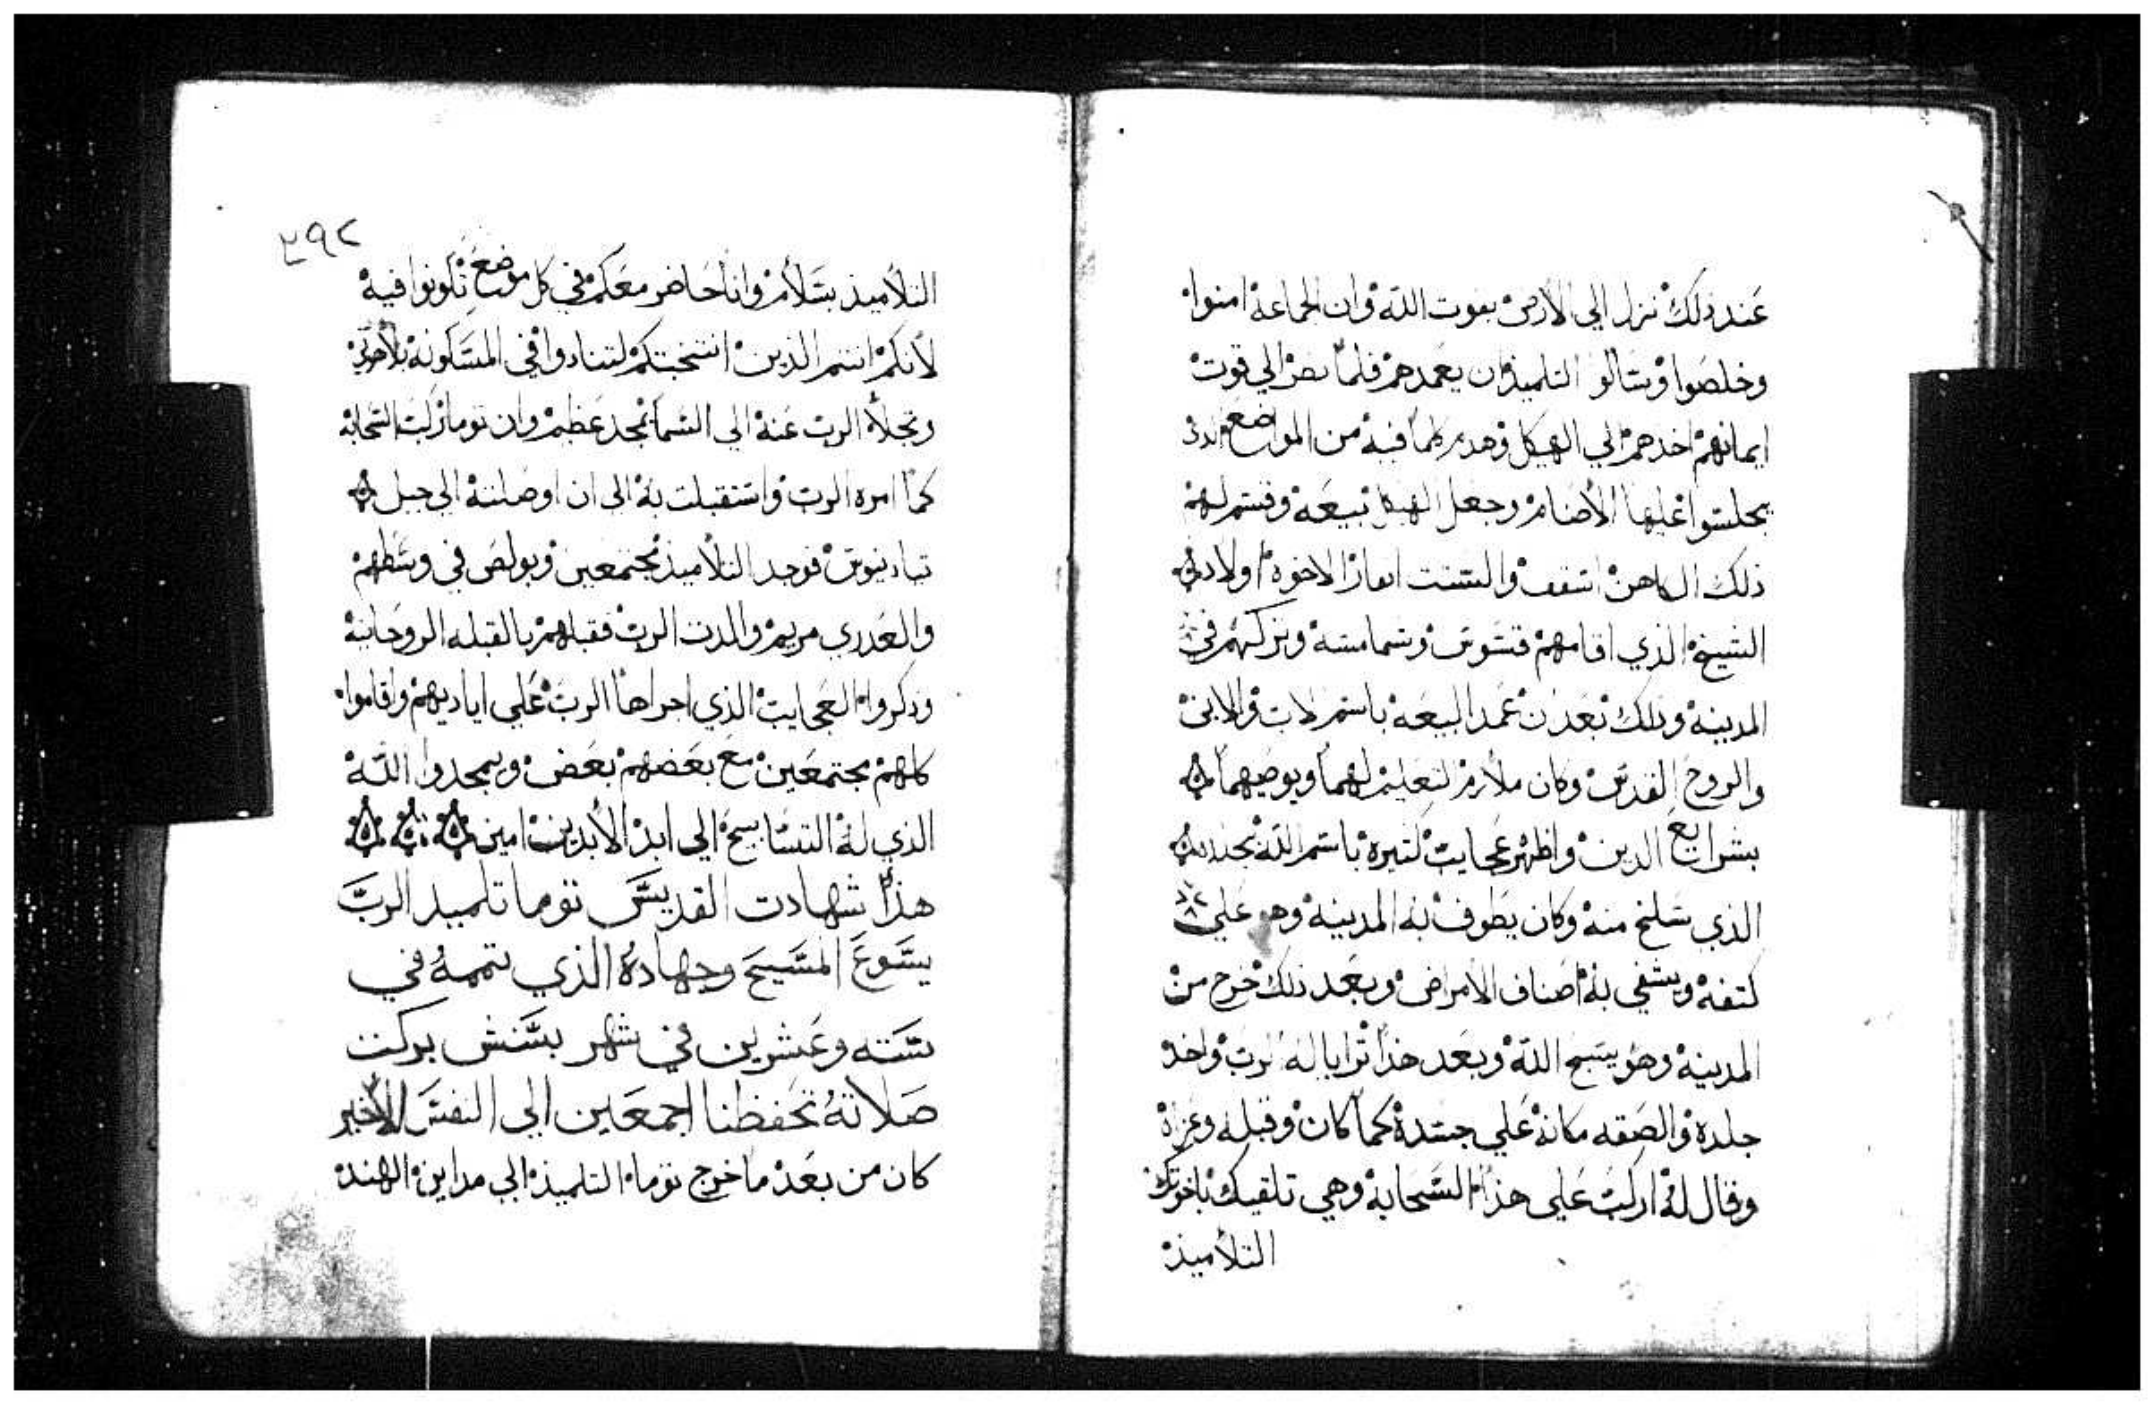 عند ذلك نزل الي الارض بقوت الله وان الجماعة امنوا
وخلصوا وسالو التلميذ ان يعمدهم فلما نضر الي قوت
ايمانهم اخدهم الي الهيكل وهدم كلما فيه من المواضع الذي
يجلسوا عليها الأصنام وجعل الهيكل بيعة وقسم لهم
ذلك الكاهن اسقف والستت انفار الاخوة اولاد
الشيخ الذي اقامهم قسوس وشمامسة وتركهم في
المدينة وذلك بعد ان عمد البيعة باسم الاب والابن
والروح القدس وكان ملازم لتعليم لهما ويوصيهما
بشرايع الدين واظهر عجايب كتيرة باسم الله بجلده
الذي سلخ منه وكان يطوف به المدينة وهو علي
كتفه ويشفي به أصناف الامراض وبعد ذلك خرج من
المدينة وهو يسبح الله وبعد هذا ترايا له الرب واخد
جلده والصقه مكانه علي جسده كما كان وقبله وعزاه
وقال له اركب علي هذه السحابة وهي تلقيك باخوتك
التلاميذ
٢٩٢
التلاميذ بسلام وانا حاضر معكم في كل موضع تكونوا فيه
لأنكم انتم الذين انتخبتكم لتنادوا في المسكونة
وتجلا الرب عنه الي السما بمجد عظيم وان توما ركب السحابه
كما امره الرب واستقبلت به الي ان اوصلته الي جبل
تبادينوس فوجد التلاميذ مجتمعين وبولص في وسطهم
والعدري مريم والدت الرب فقبلهم بالقبله الروحانية
وذكروا العجايب الذي اجراها الرب علي اياديهم واقاموا
كلهم مجتمعين مع بعضهم بعض ويمجدوا الله
الذي له التسابيح الي ابد الأبدين امين
هذا شهادت القديس توما تلميد الرب
يسوع المسيح وجهاده الذي تممه في
سته وعشرين في شهر بشنش بركت
صلاته تحفظنا اجمعين الي النفس الأخير
كان من بعد ما خرج توما التلميذ الي مداين الهند